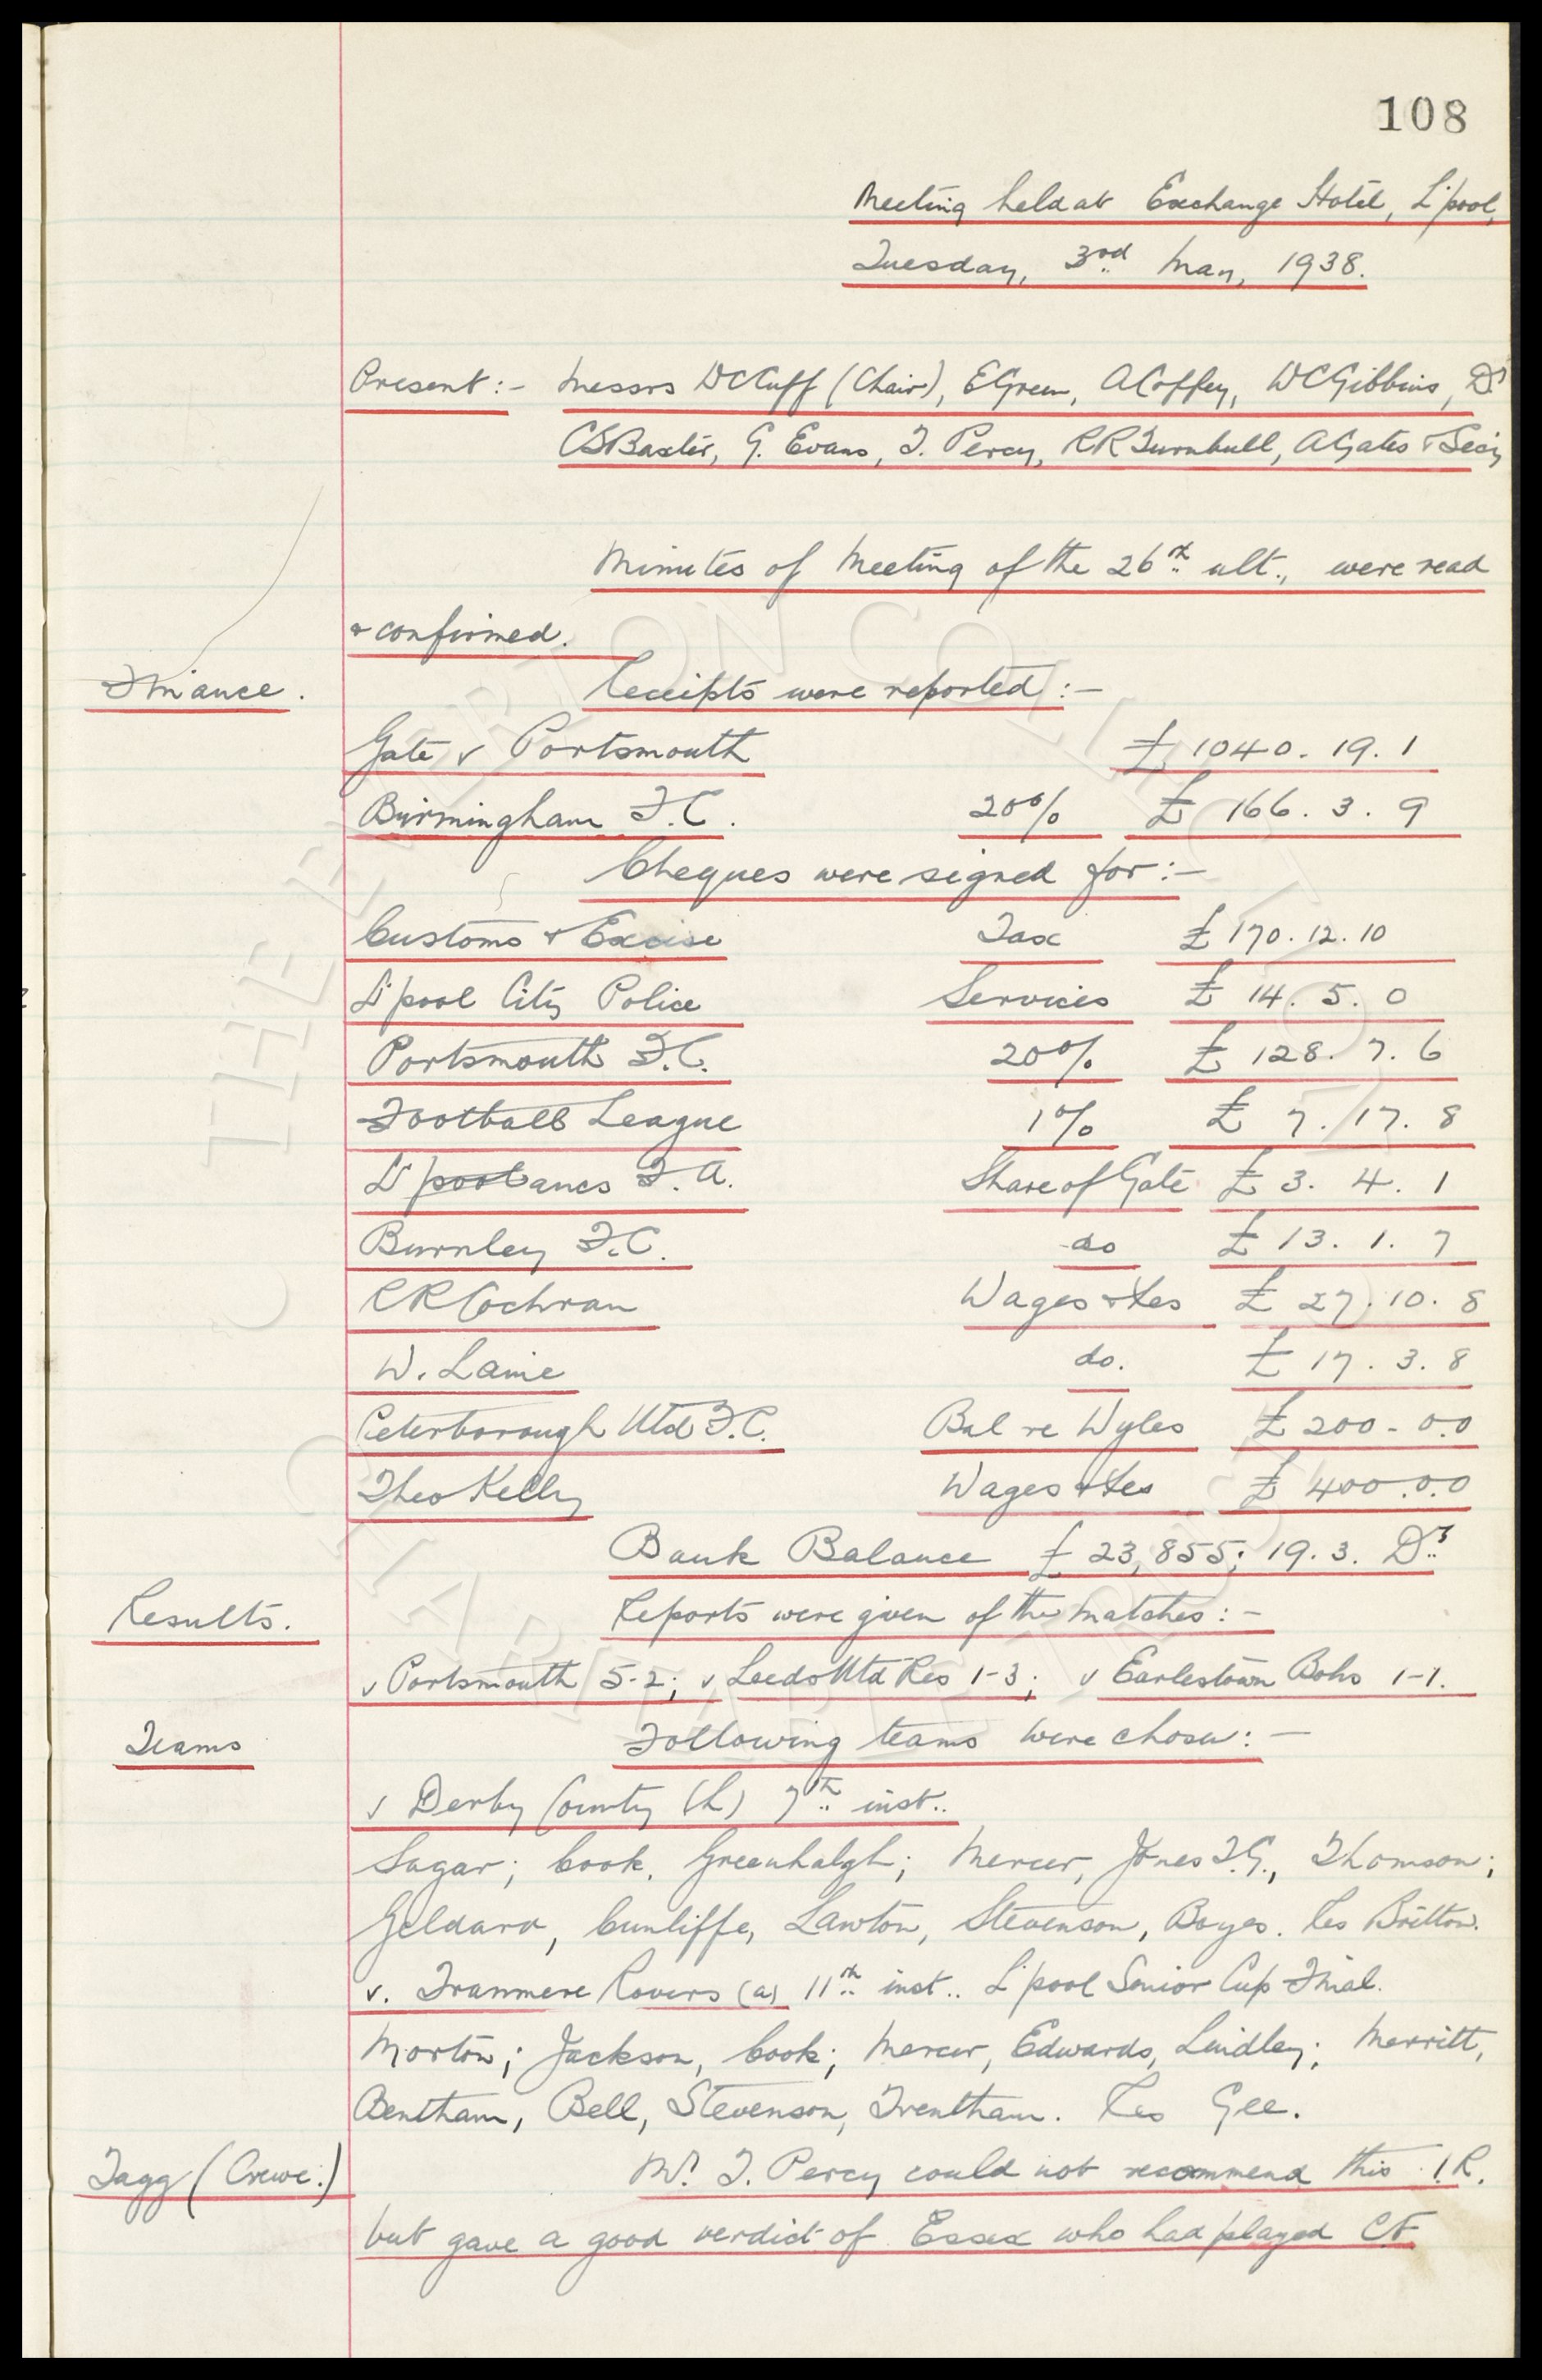 108
Meeting held at Exchange Hotel, L'pool,
Tuesday, 3rd May, 1938.
Present:- Messrs WCCuff (Chair), EGreen, ACoffey, WCGibbins, Dr
CSBaxter, G. Evans, T. Percy, RRTurnbull, AGates & Secy
Minutes of Meeting of the 26th ult., were read
& confirmed.
Finance. Receipts were reported:-
Gate v Portsmouth £1040. 19. 1
Birmingham F.C. 20% £ 166. 3. 9
Cheques were signed for:-
Customs & Excise Tax £170. 12. 10
L'pool City Police Services £14. 5. 0
Portsmouth F.C. 20% £ 128. 7. 6
Football League 1% £ 7. 17. 8
L'pool ancs F.A. Share of Gate £3. 4. 1
Burnley F.C. do £13. 1. 7
RRCochran Wages & Xes £ 27. 10. 8
W. Laine do. £ 17. 3. 8
Peterborough Utd F.C. Bal re Wyles £200-0.0
Theo Kelly Wages & Xes £ 400.0.0
Bank Balance £23,855; 19. 3. Dr
Results. Reports were given of the matches:-
v Portsmouth 5-2; v Leeds Utd Res 1-3; v Earlestown Bohs 1-1.
Teams Following teams were chosen:-
v Derby County (h) 7th inst..
Sagar; Cook, Greenhalgh; Mercer, Jones T.G., Thomson;
Geldard, Cunliffe, Lawton, Stevenson, Boyes. Res Britton.
v. Tranmere Rovers (a) 11th inst.. L'pool Senior Cup Final.
Morton; Jackson, Cook; Mercer, Edwards, Lindley; Merritt,
Bentham, Bell, Stevenson, Trentham. Res Gee.
Tagg (Crewe.) Mr. T. Percy could not recommend this I.R.
but gave a good verdict of Essex who had played CF
THE EVERTON COLLECTION
CHARITABLE TRUST